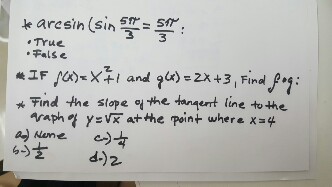 * arcsin(sin 5π/3 = 5π/3 :
• True
• False
* IF f(x)=x²+1 and g(x)=2x+3, Find fog:
* Find the slope of the tangent line to the
graph of y=√x at the point where x=4
a.) None c.) 1/4
b.) 1/2
d.) 2